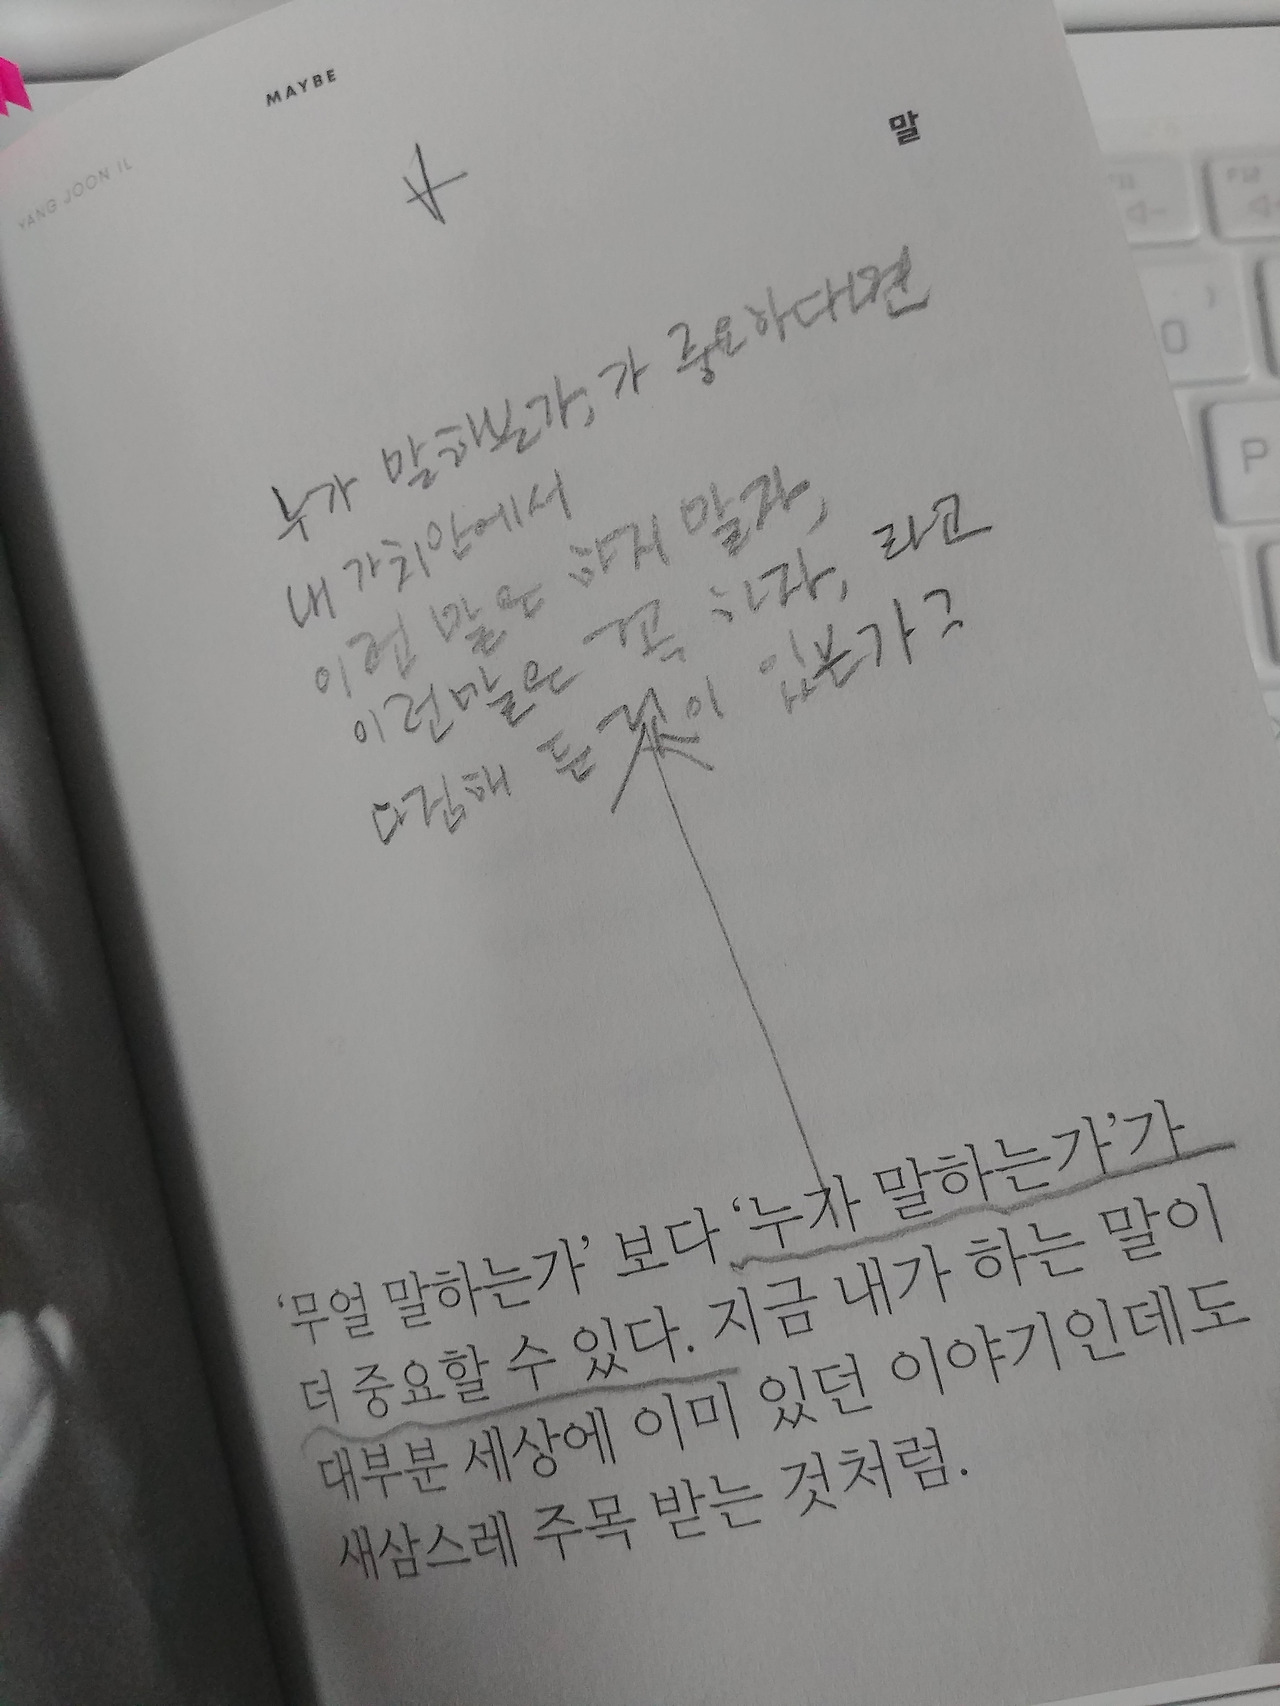 MAYBE
YANG JOON IL
말
누가 말해본가, 가 중요하다면
내 가치안에서
이런 말은 하지 말자,
이런말은 꼭 하자, 라고
다짐해 둔 것이 있는가?
'무얼 말하는가' 보다 '누가 말하는가'가
더 중요할 수 있다. 지금 내가 하는 말이
대부분 세상에 이미 있던 이야기인데도
새삼스레 주목 받는 것처럼.
P